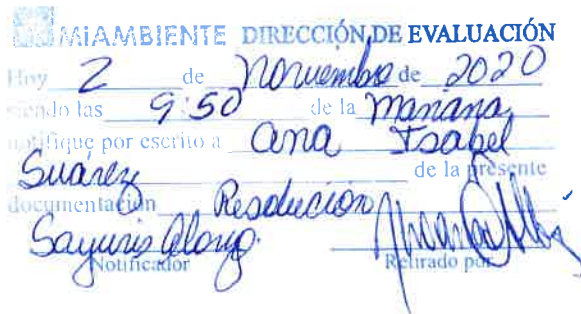 MIAMBIENTE DIRECCIÓN DE EVALUACIÓN
Hoy 2 de Noviembre de 2020
siendo las 9:50 de la mañana
notifique por escrito a Ana Isabel
Suárez de la presente
documentación Resolución
Sayuris Alonzo.
Notificador Retirado por